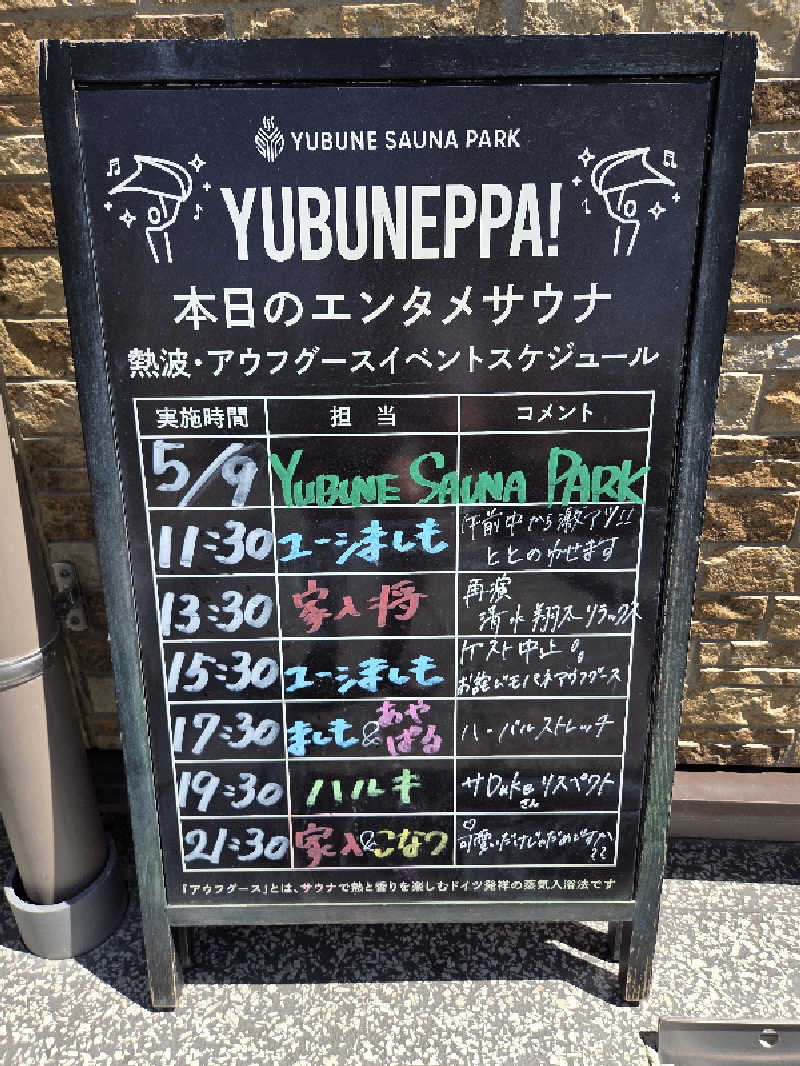 YUBUNE SAUNA PARK
YUBUNEPPA!
本日のエンタメサウナ
熱波・アウフグースイベントスケジュール
実施時間 担当 コメント
5/9 YUBUNE SAUNA PARK
11:30 ユーシましも 午前中から激アツ!!
ととのわせます
13:30 家入将 再演
清水翔太リラックス
15:30 ユーシましも ゲスト中止
アウフグース
17:30 ましも&あやぱる ハーバルストレッチ
19:30 ハルキ サDukeさんリスペクト
21:30 家入&こなつ 可愛いだけじゃだめですか
「アウフグース」とは、サウナで熱と香りを楽しむドイツ発祥の蒸気入浴法です